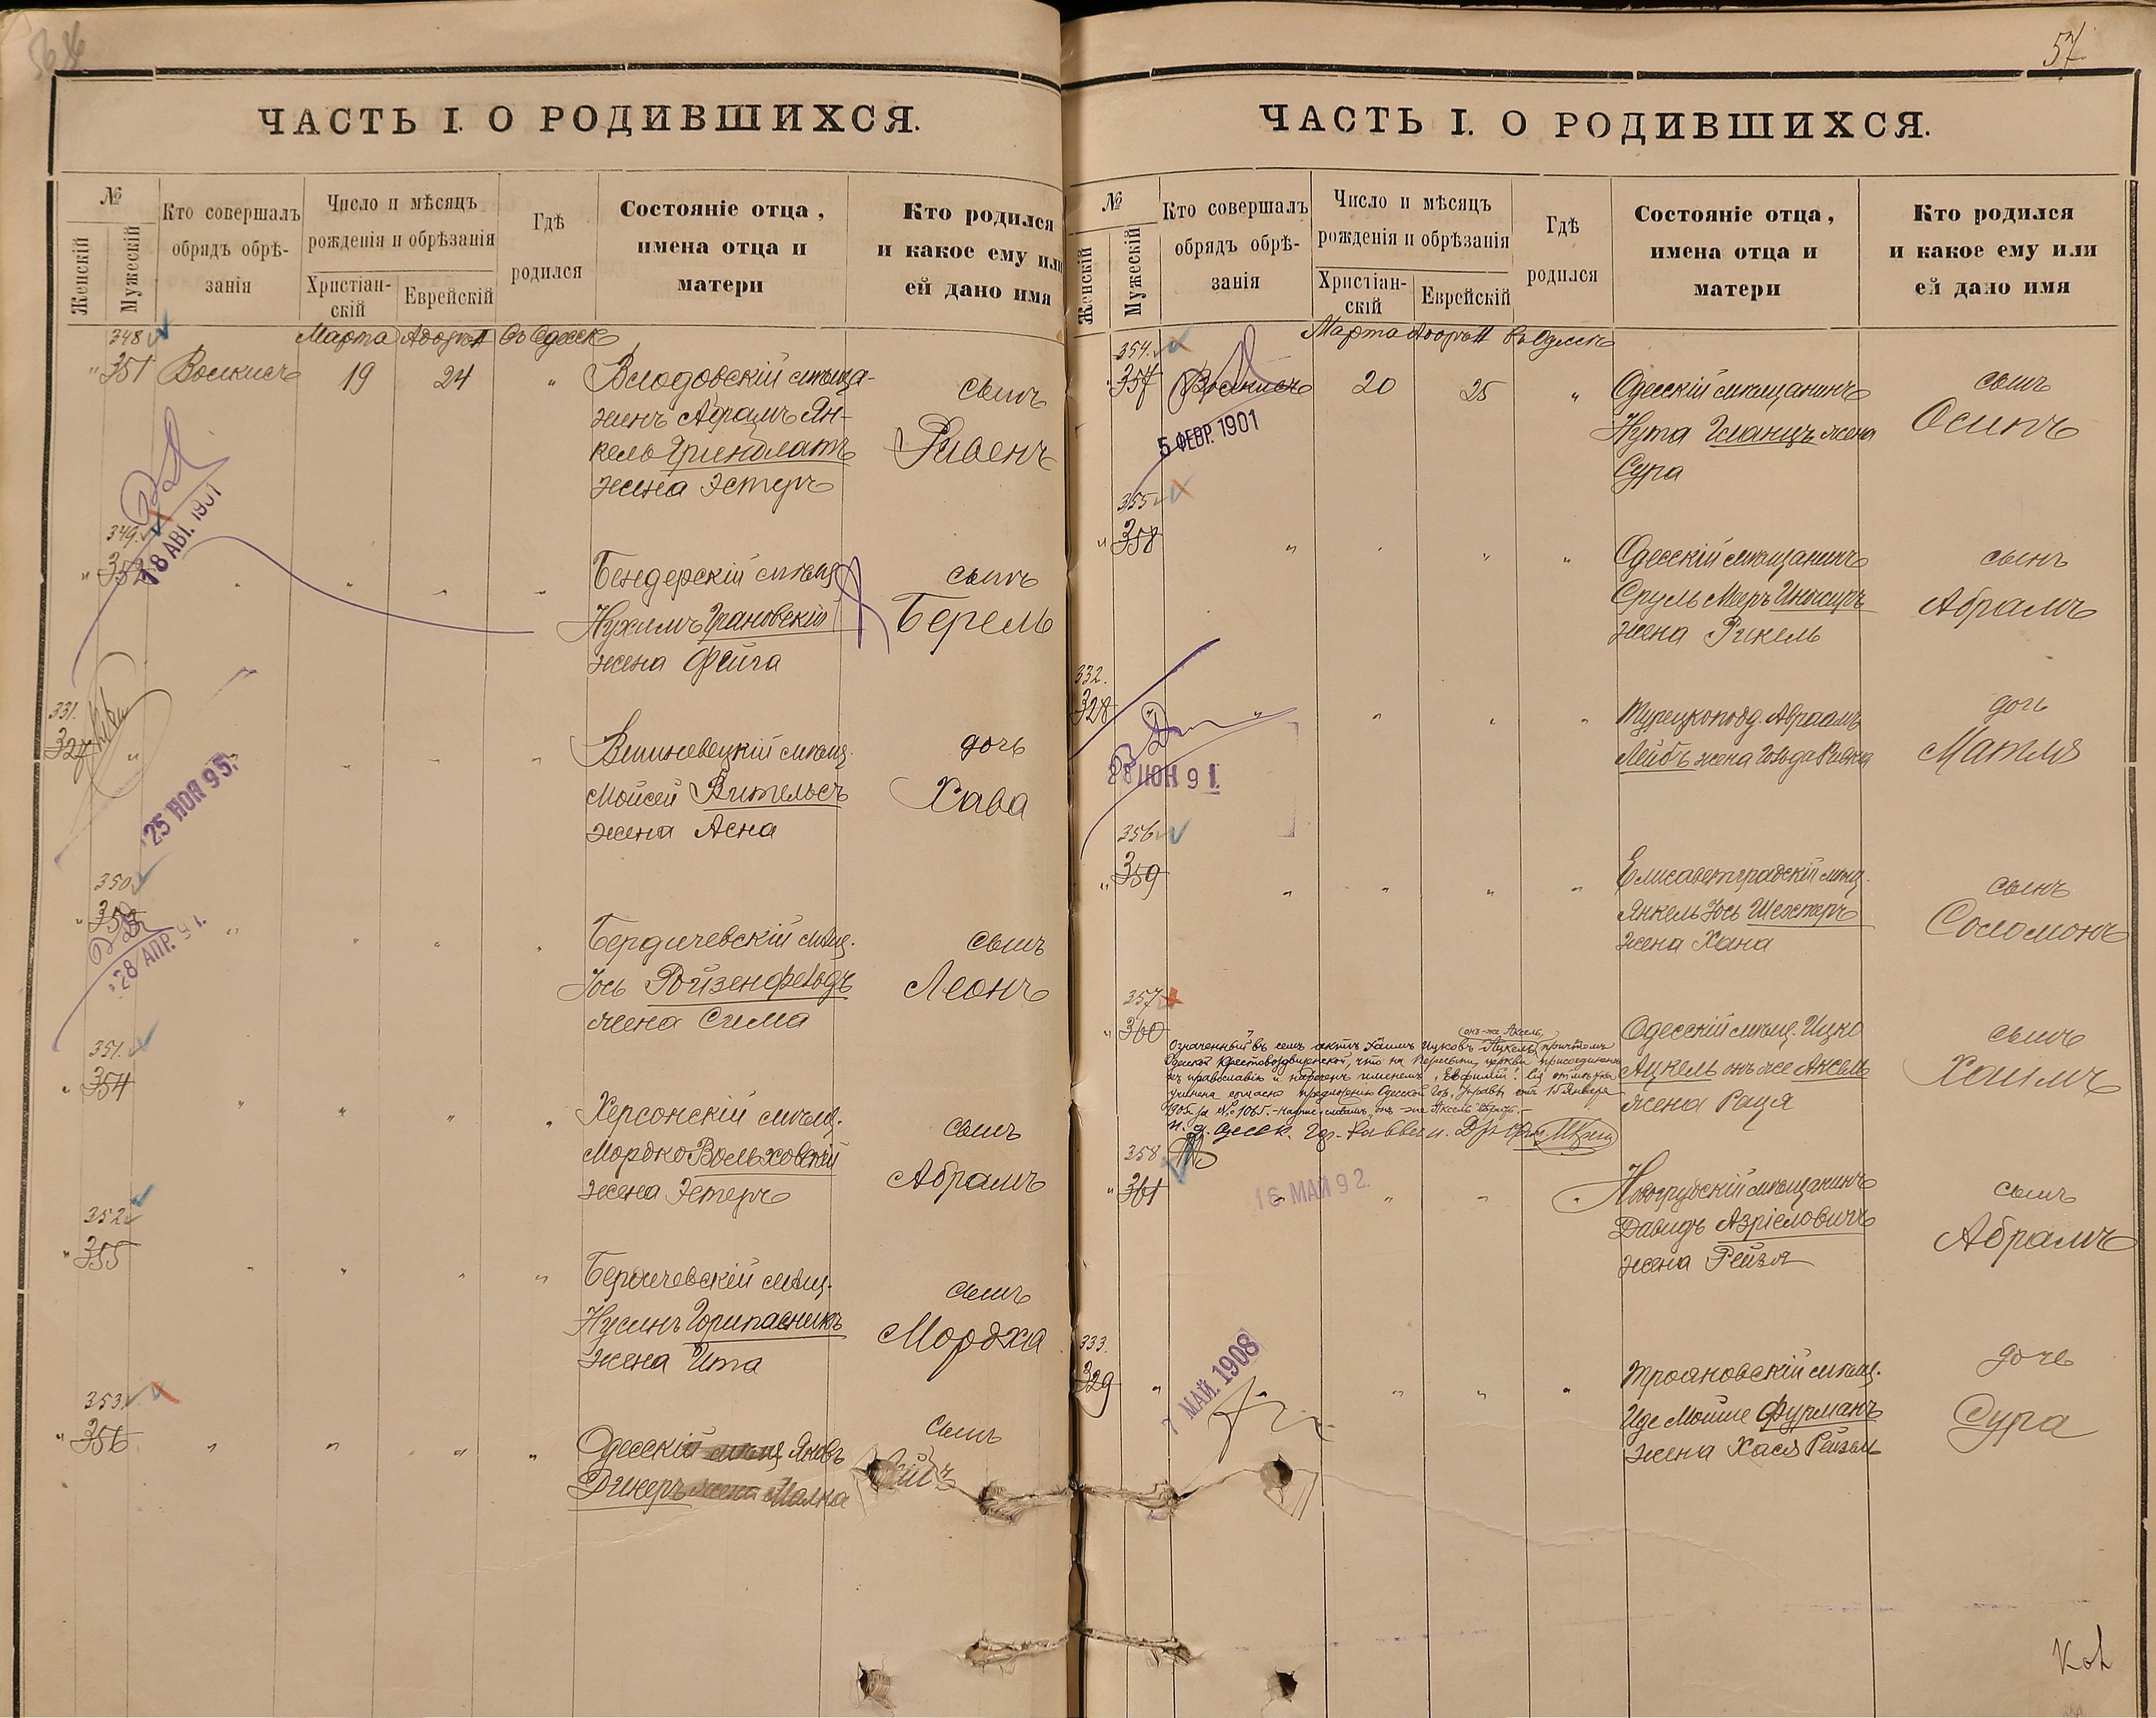 57
ЧАСТЬ I. О РОДИВШИХСЯ.
№
Женскій
Мужескій
Кто совершалъ
обрядъ обрѣ-
занія
Число и мѣсяцъ
рожденія и обрѣзанія
Христіан-
скій
Еврейскій
Гдѣ
родился
Состояніе отца,
имена отца и
матери
Кто родился
и какое ему или
ей дано имя
348
Марта
въ Одессѣ
" 351
19
24
"
мѣща-
нинъ Абрамъ Ян-
кель Гринблатъ
жена Эстеръ
сынъ
Рувенъ
18 АВГ. 1901
349.
" 352
Бендерскій мѣщ.
Нухимъ Грановскій
жена Фейга
сынъ
Берель
331.
327 "
Вишневецкій мѣщ.
Мойсей
жена Асна
дочь
Хава
25 НОЯ 95.
350
" 353
Бердичевскій мѣщ.
Іось Ройзенфельдъ
жена Сима
сынъ
Леонъ
28 АПР. 91.
351.
" 354
Херсонскій мѣщ.
Мордко Вольховскій
жена Эстеръ
сынъ
Абрамъ
352
" 355
Бердичевскій мѣщ.
Нусинъ
жена Ита
сынъ
Мордха
353.
" 356
Одесскій Яковъ
жена Малка
сынъ
ЧАСТЬ I. О РОДИВШИХСЯ.
№
Женскій
Мужескій
Кто совершалъ
обрядъ обрѣ-
занія
Число и мѣсяцъ
рожденія и обрѣзанія
Христіан-
скій
Еврейскій
Гдѣ
родился
Состояніе отца,
имена отца и
матери
Кто родился
и какое ему или
ей дано имя
354.
Марта
въ Одессѣ
" 357
20
25
"
Одесскій мѣщанинъ
Нута Гланцъ жена
Сура
сынъ
Осипъ
5 ФЕВР. 1901
355
" 358
Одесскій мѣщанинъ
Сруль Меръ
жена Рикель
сынъ
Абрамъ
332.
328
Турецкоподд. Авраамъ
Лейбъ жена Гольда
дочь
Матля
28 ІЮН 91.
356
" 359
Елисаветградскій мѣщ.
Янкель Іось Шехтеръ
жена Хана
сынъ
Соломонъ
357
" 360
Одесскій мѣщ. Ицко
Ацкель онъ же Аксель
жена Рація
сынъ
Хаимъ
(онъ-же Аксель)
Означенный въ семъ актѣ Хаимъ Ицковъ Ацкель причтомъ
Одесской Крестовоздвиженской, что на Пересыпи, церкви присоединенъ
къ православію и нареченъ именемъ "Евфимій". Сія отмѣтка
учинена согласно предложенію Одесской Гор. Управы отъ 15 Января
1905 г. за № 1065.
358
" 361
16 МАЙ 92.
мѣщанинъ
Давидъ Азріеловичъ
жена Рейзя
сынъ
Абрамъ
333.
329 "
Трояновскій мѣщ.
Иде Мойше Фурманъ
жена Хася Рейзель
дочь
Сура
7 МАЙ. 1908